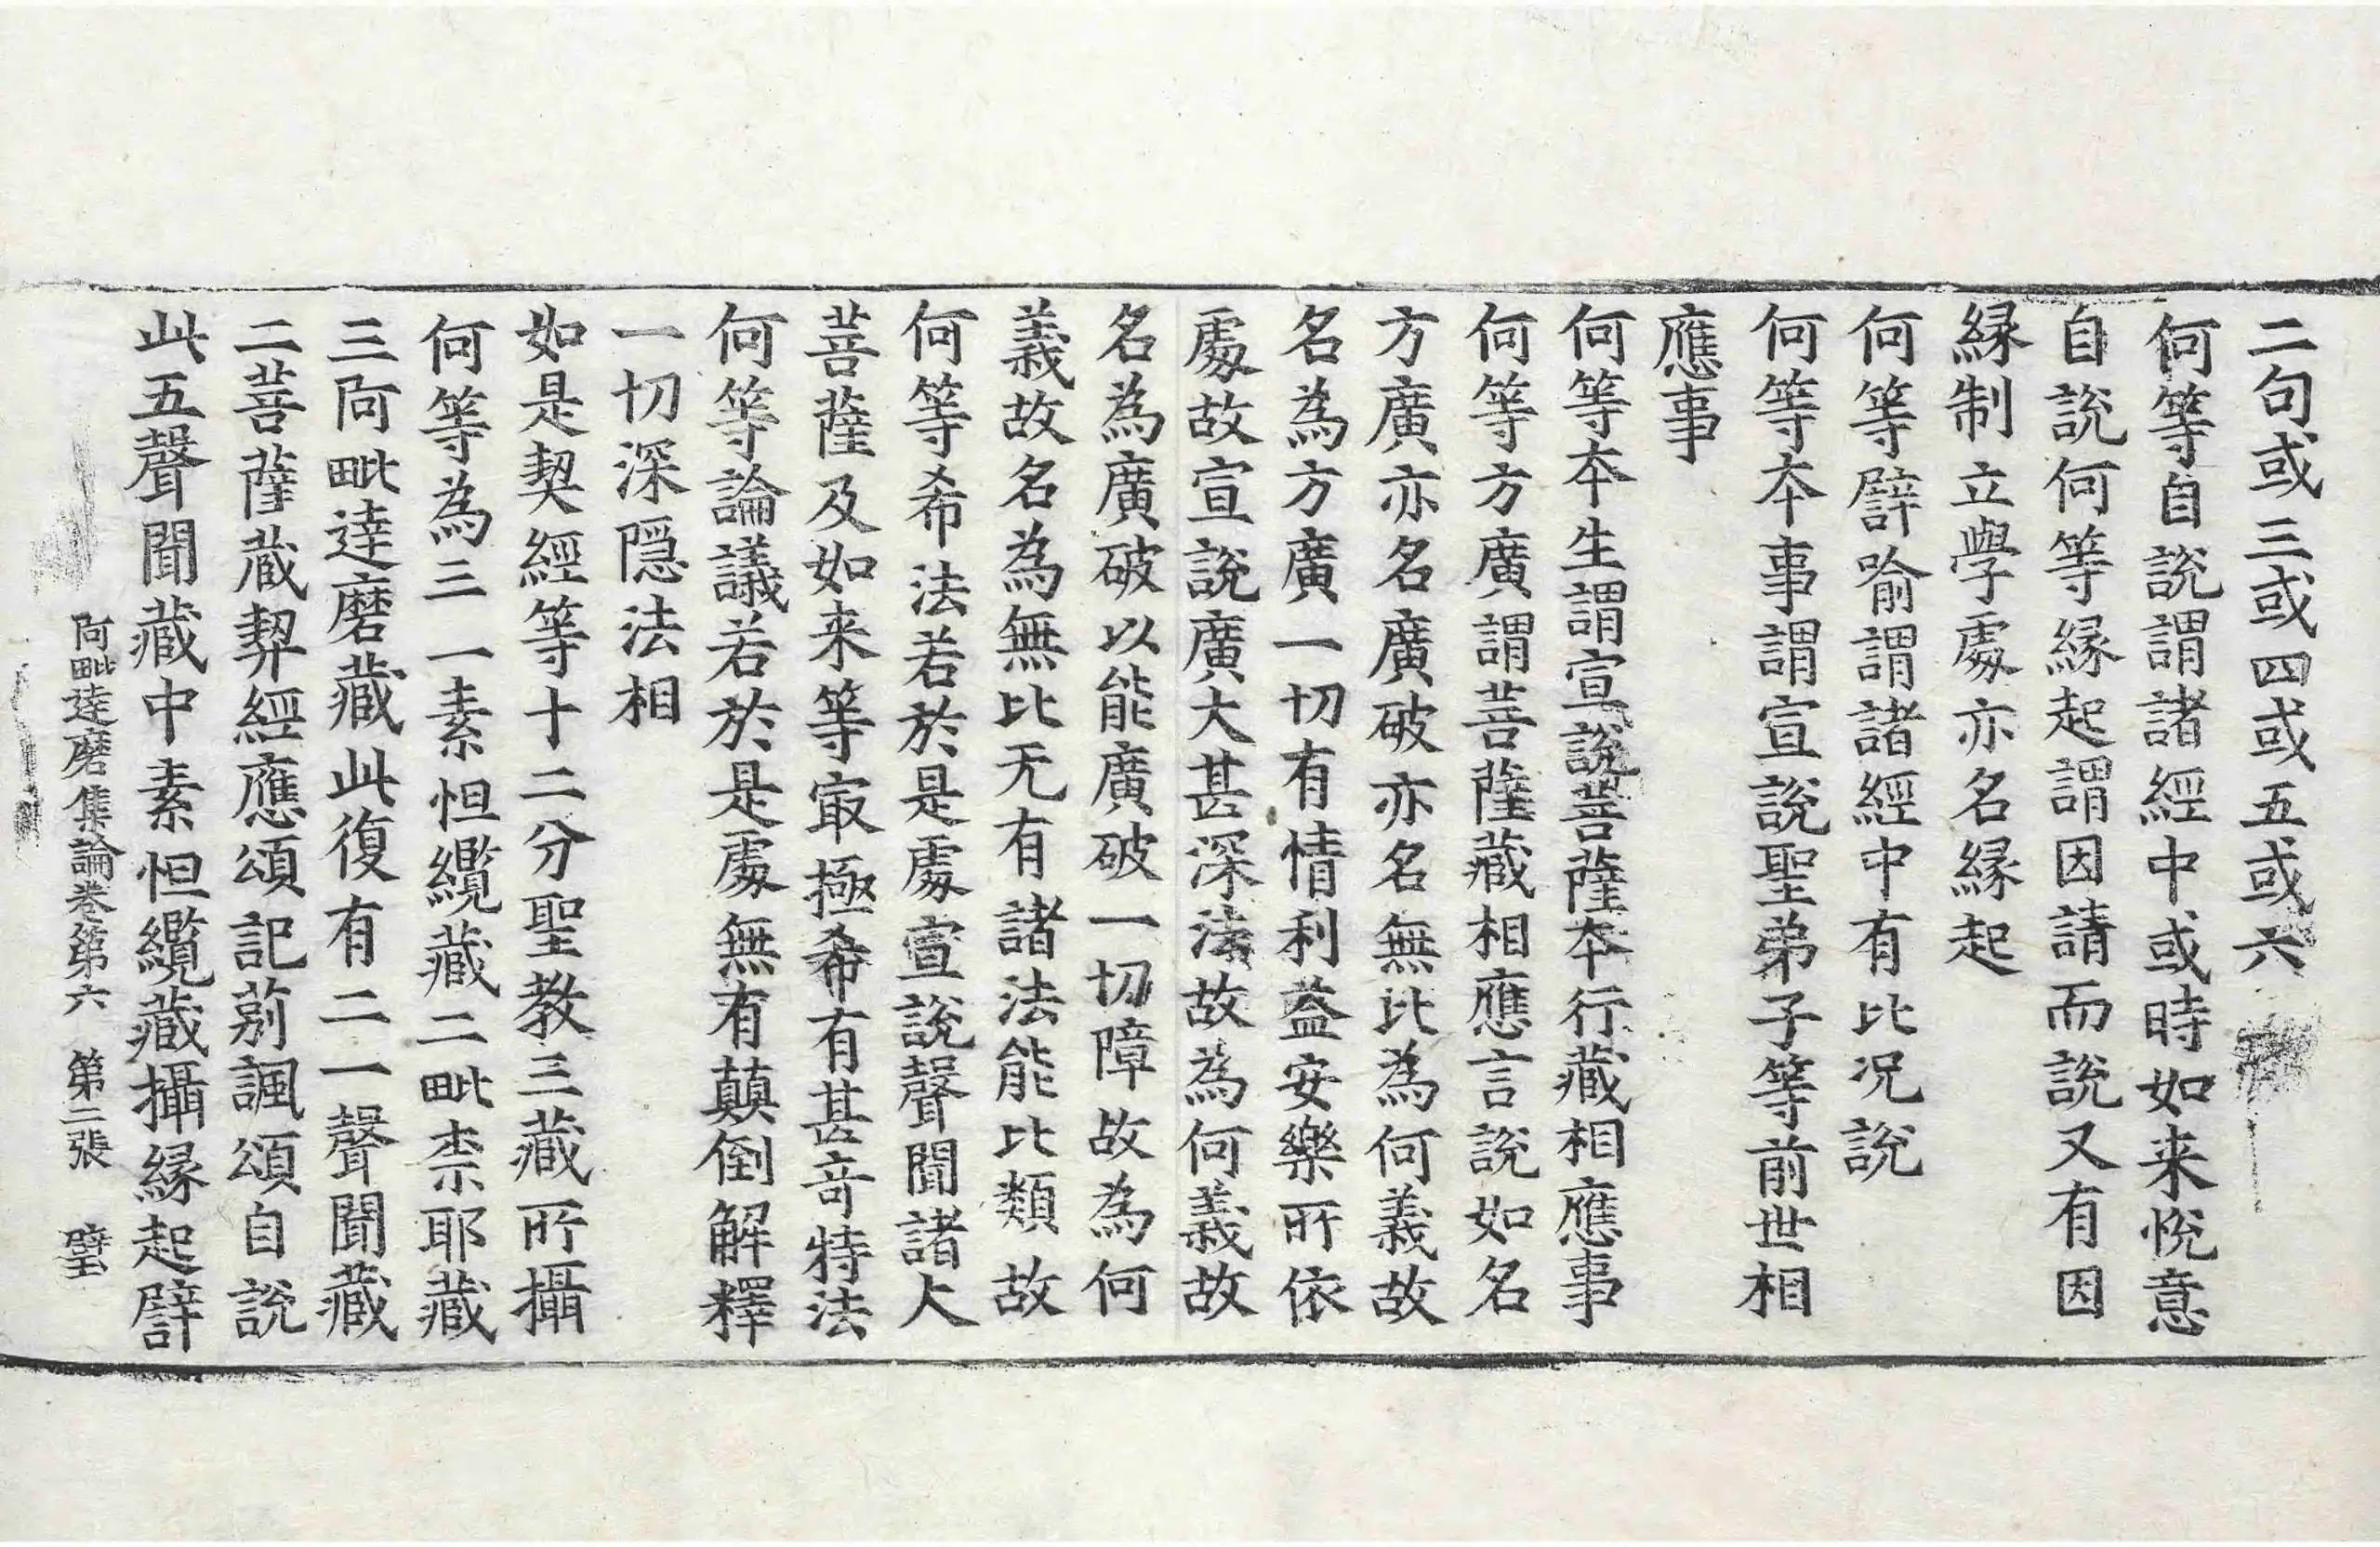 二句或三或四或五或六
何等自說謂諸經中或時如来悅意
自說何等縁起謂因請而說又有因
縁制立學處亦名縁起
何等譬喻謂諸經中有比况說
何等本事謂宣說聖弟子等前世相
應事
何等本生謂宣說菩薩本行藏相應事
何等方廣謂菩薩藏相應言說如名
方廣亦名廣破亦名無比為何義故
名為方廣一切有情利益安樂所依
處故宣說廣大甚深法故為何義故
名為廣破以能廣破一切障故為何
義故名為無比无有諸法能比類故
何等希法若於是處宣說聲聞諸大
菩薩及如来等㝡極希有甚竒特法
何等論議若於是處無有顛倒解釋
一切深隠法相
如是契經等十二分聖教三藏所攝
何等為三一素怛纜藏二毗柰耶藏
三阿毗達磨藏此復有二一聲聞藏
二菩薩藏契經應頌記莂諷頌自說
此五聲聞藏中素怛纜藏攝縁起譬
阿毗達磨集論卷第六　第二張　璧